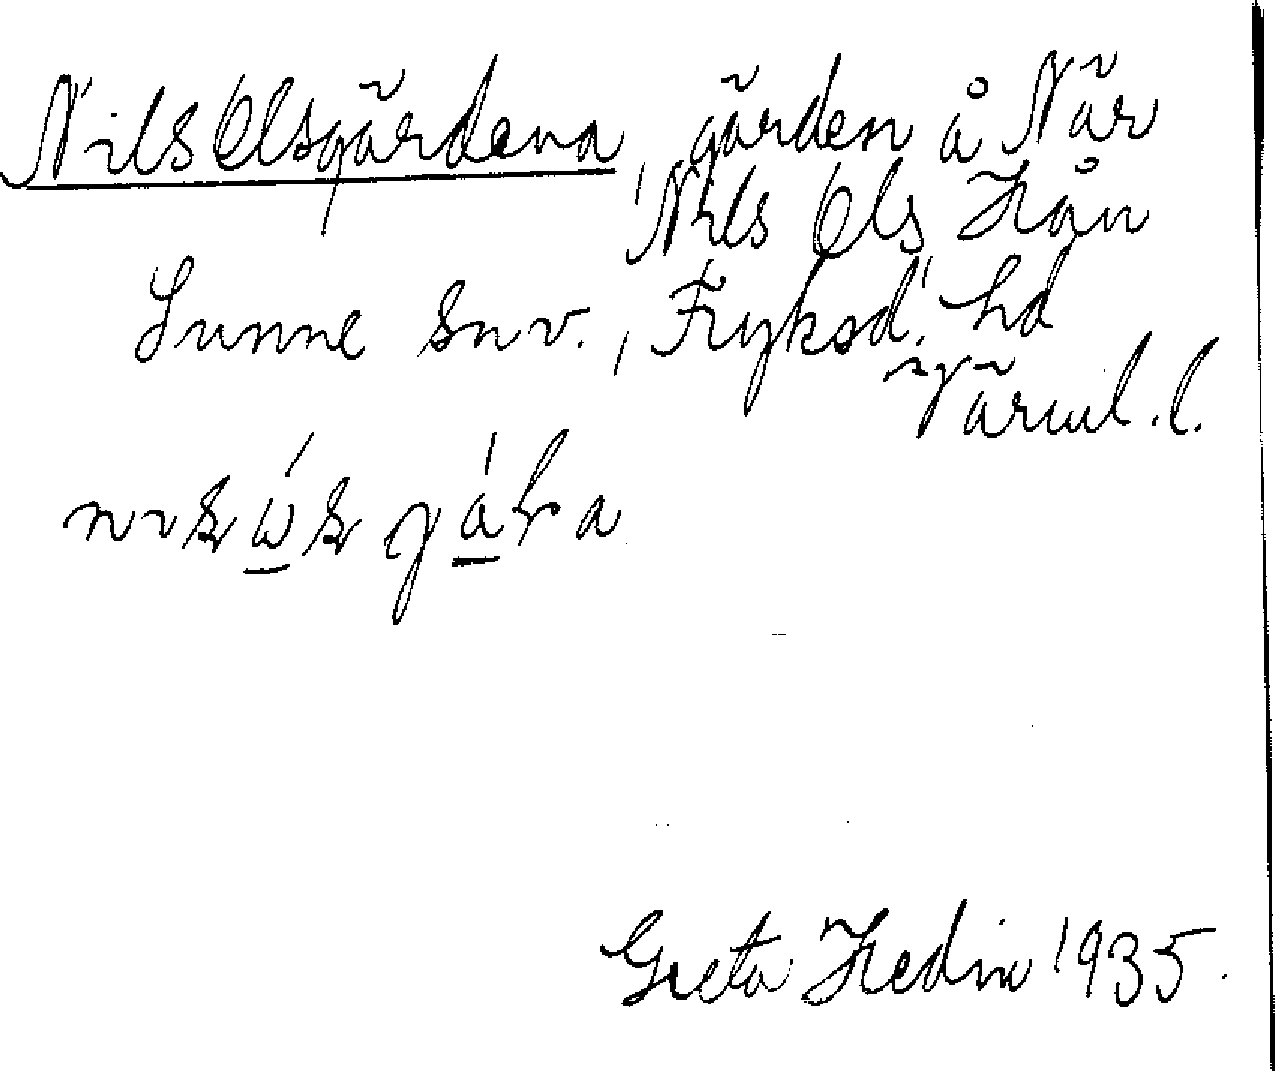 Nils Olsgårdena, gården å När
Nils Ols Hån
Sunne snv., Fryksd. hd
Värml. l.
Greta Hedin 1935.